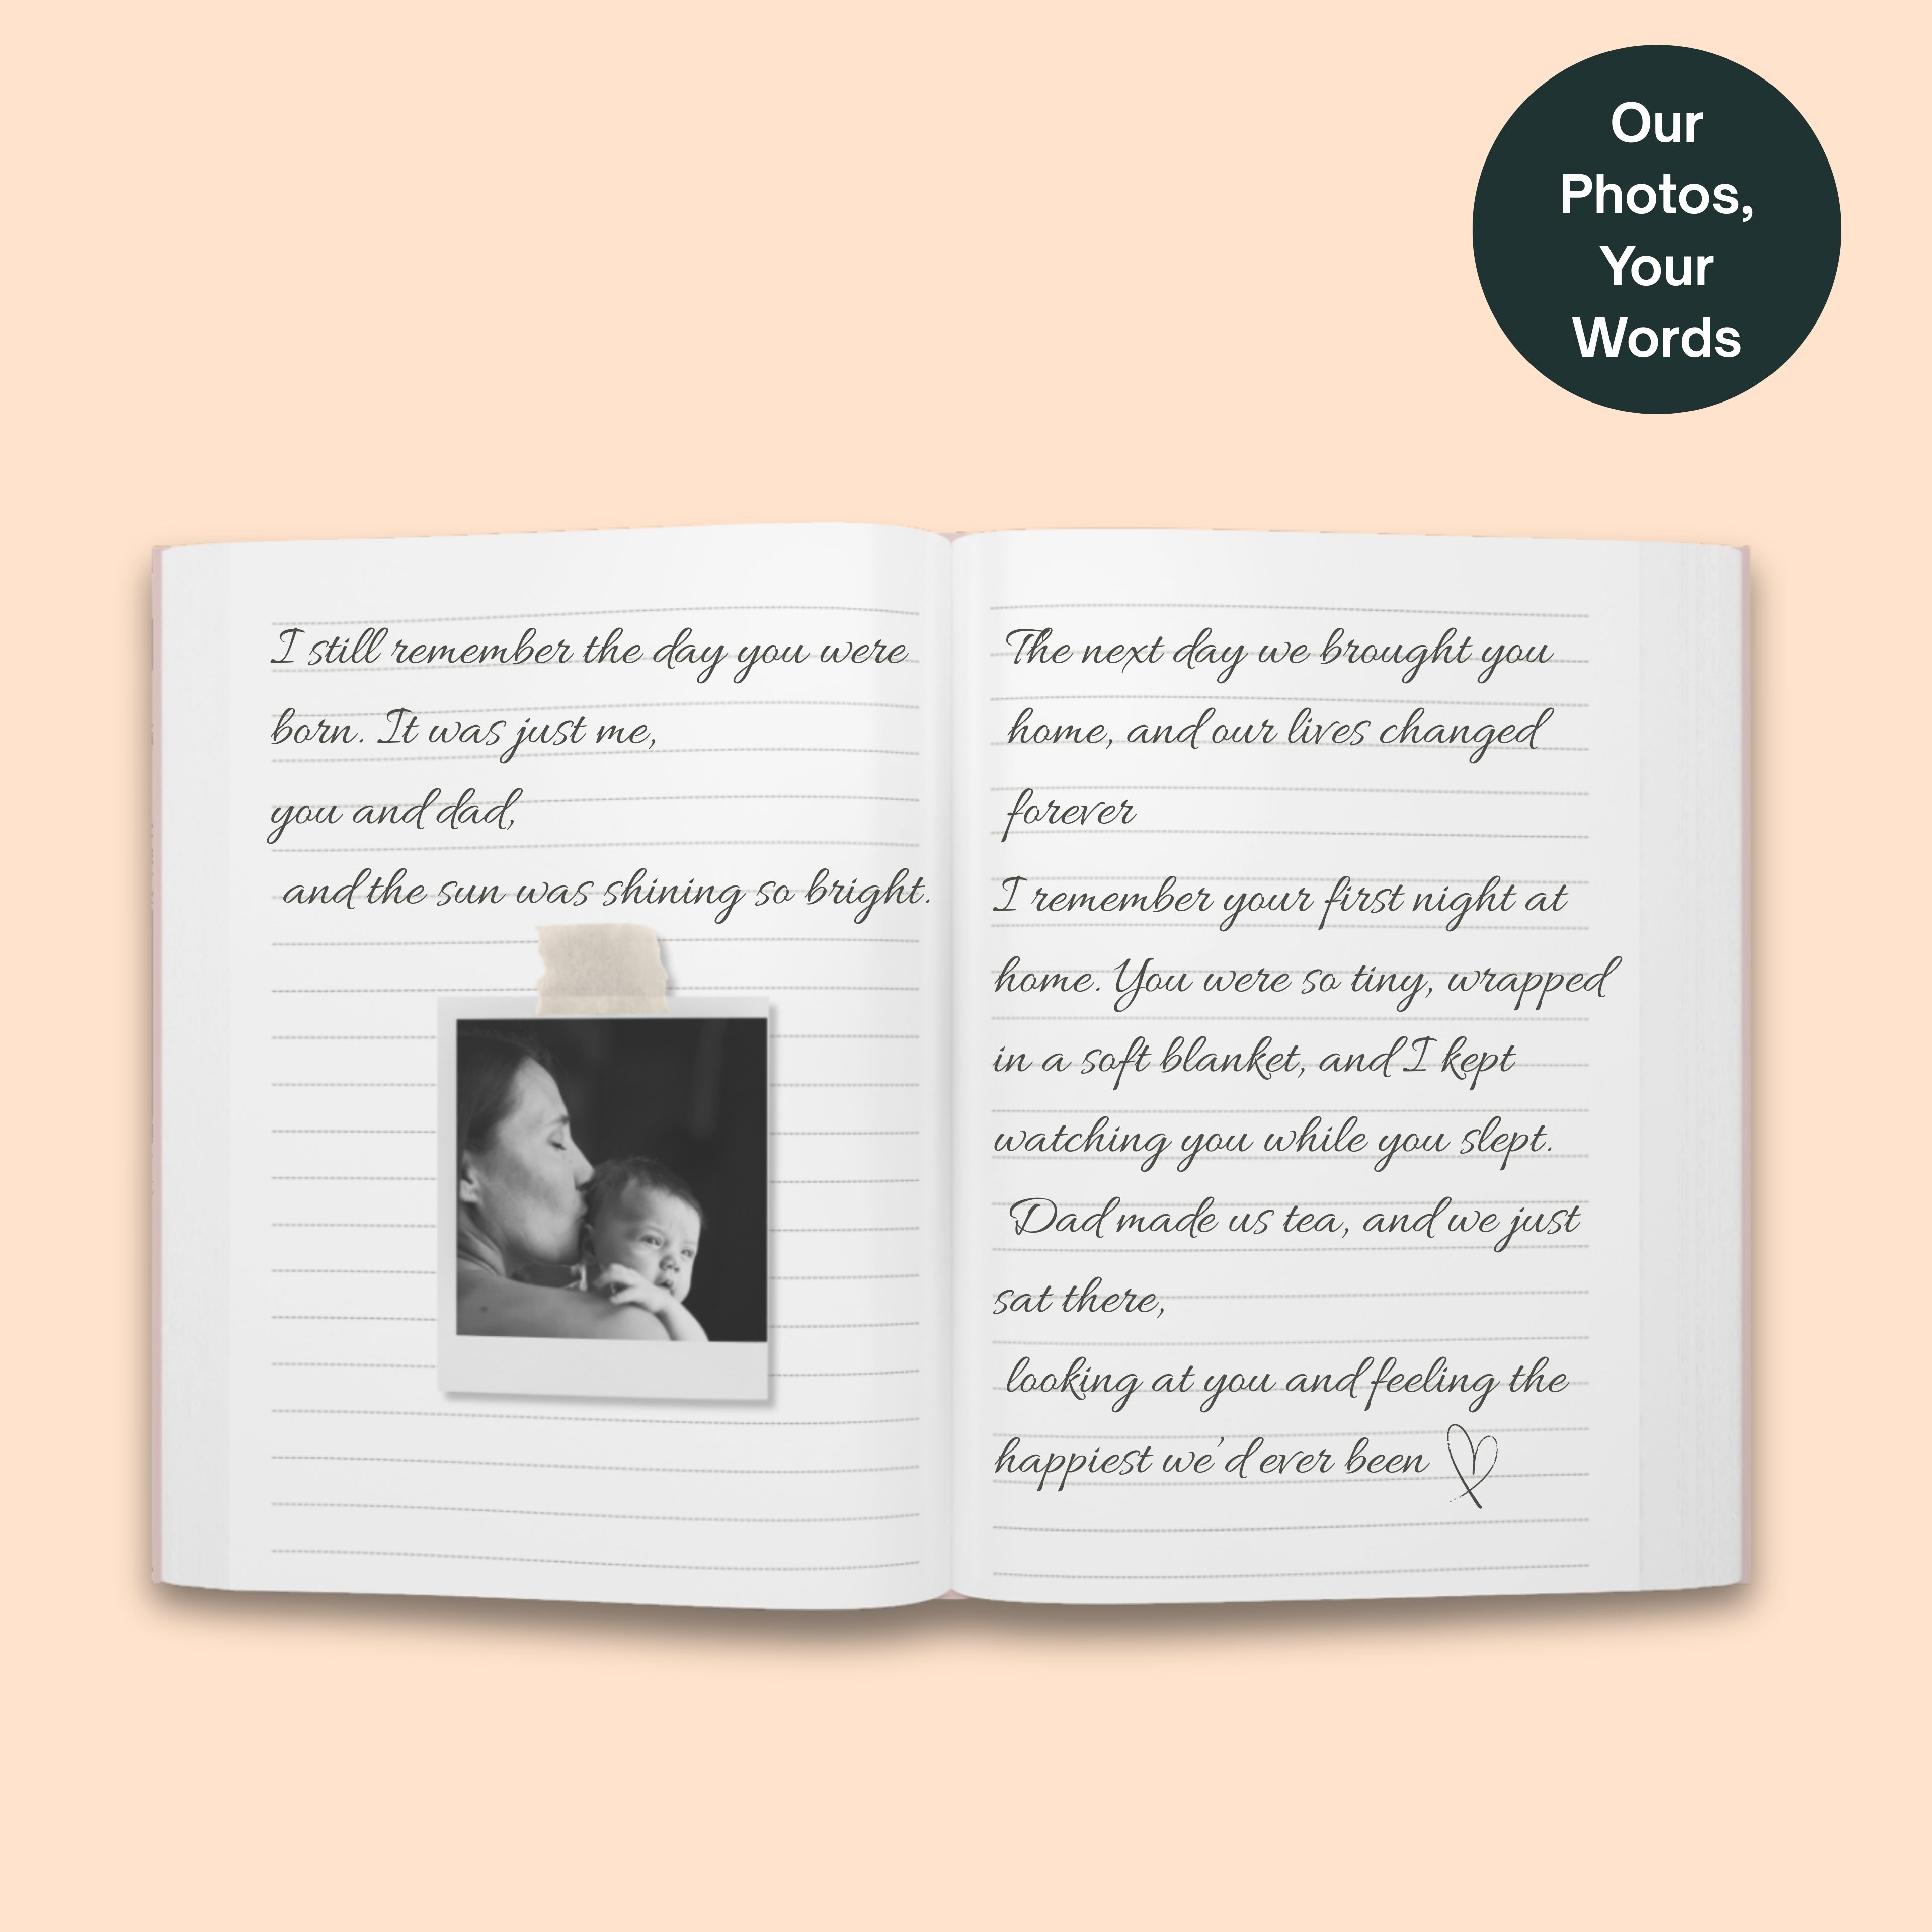 Our
Photos,
Your
Words
I still remember the day you were
born. It was just me,
you and dad,
and the sun was shining so bright.
The next day we brought you
home, and our lives changed
forever
I remember your first night at
home. You were so tiny, wrapped
in a soft blanket, and I kept
watching you while you slept.
Dad made us tea, and we just
sat there,
looking at you and feeling the
happiest we'd ever been